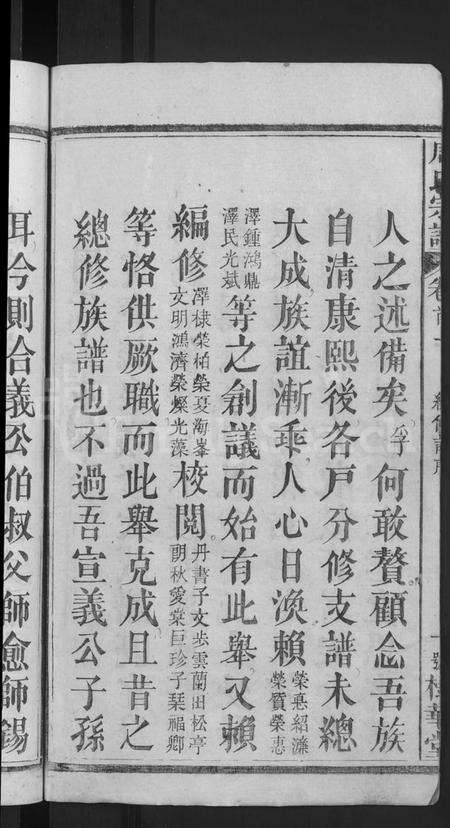 人之述備矣孚何敢贅顧念吾族
自清康熙後各戶分修支譜未總
大成族誼漸乖人心日渙賴榮惪紹濂
榮賓榮惠
澤鍾鴻鼎
澤民光斌等之創議而始有此舉又賴
編修澤棣榮柏榮
文明鴻濟榮燦光藻校閱丹書子文步雲蘭田松亭
朗秋愛棠巨珍子琹福卿
等恪供厥職而此舉克成且昔之
總修族譜也不過吾宣義公子孫
耳今則合義公伯叔父師愈師錫
周氏宗譜
卷首